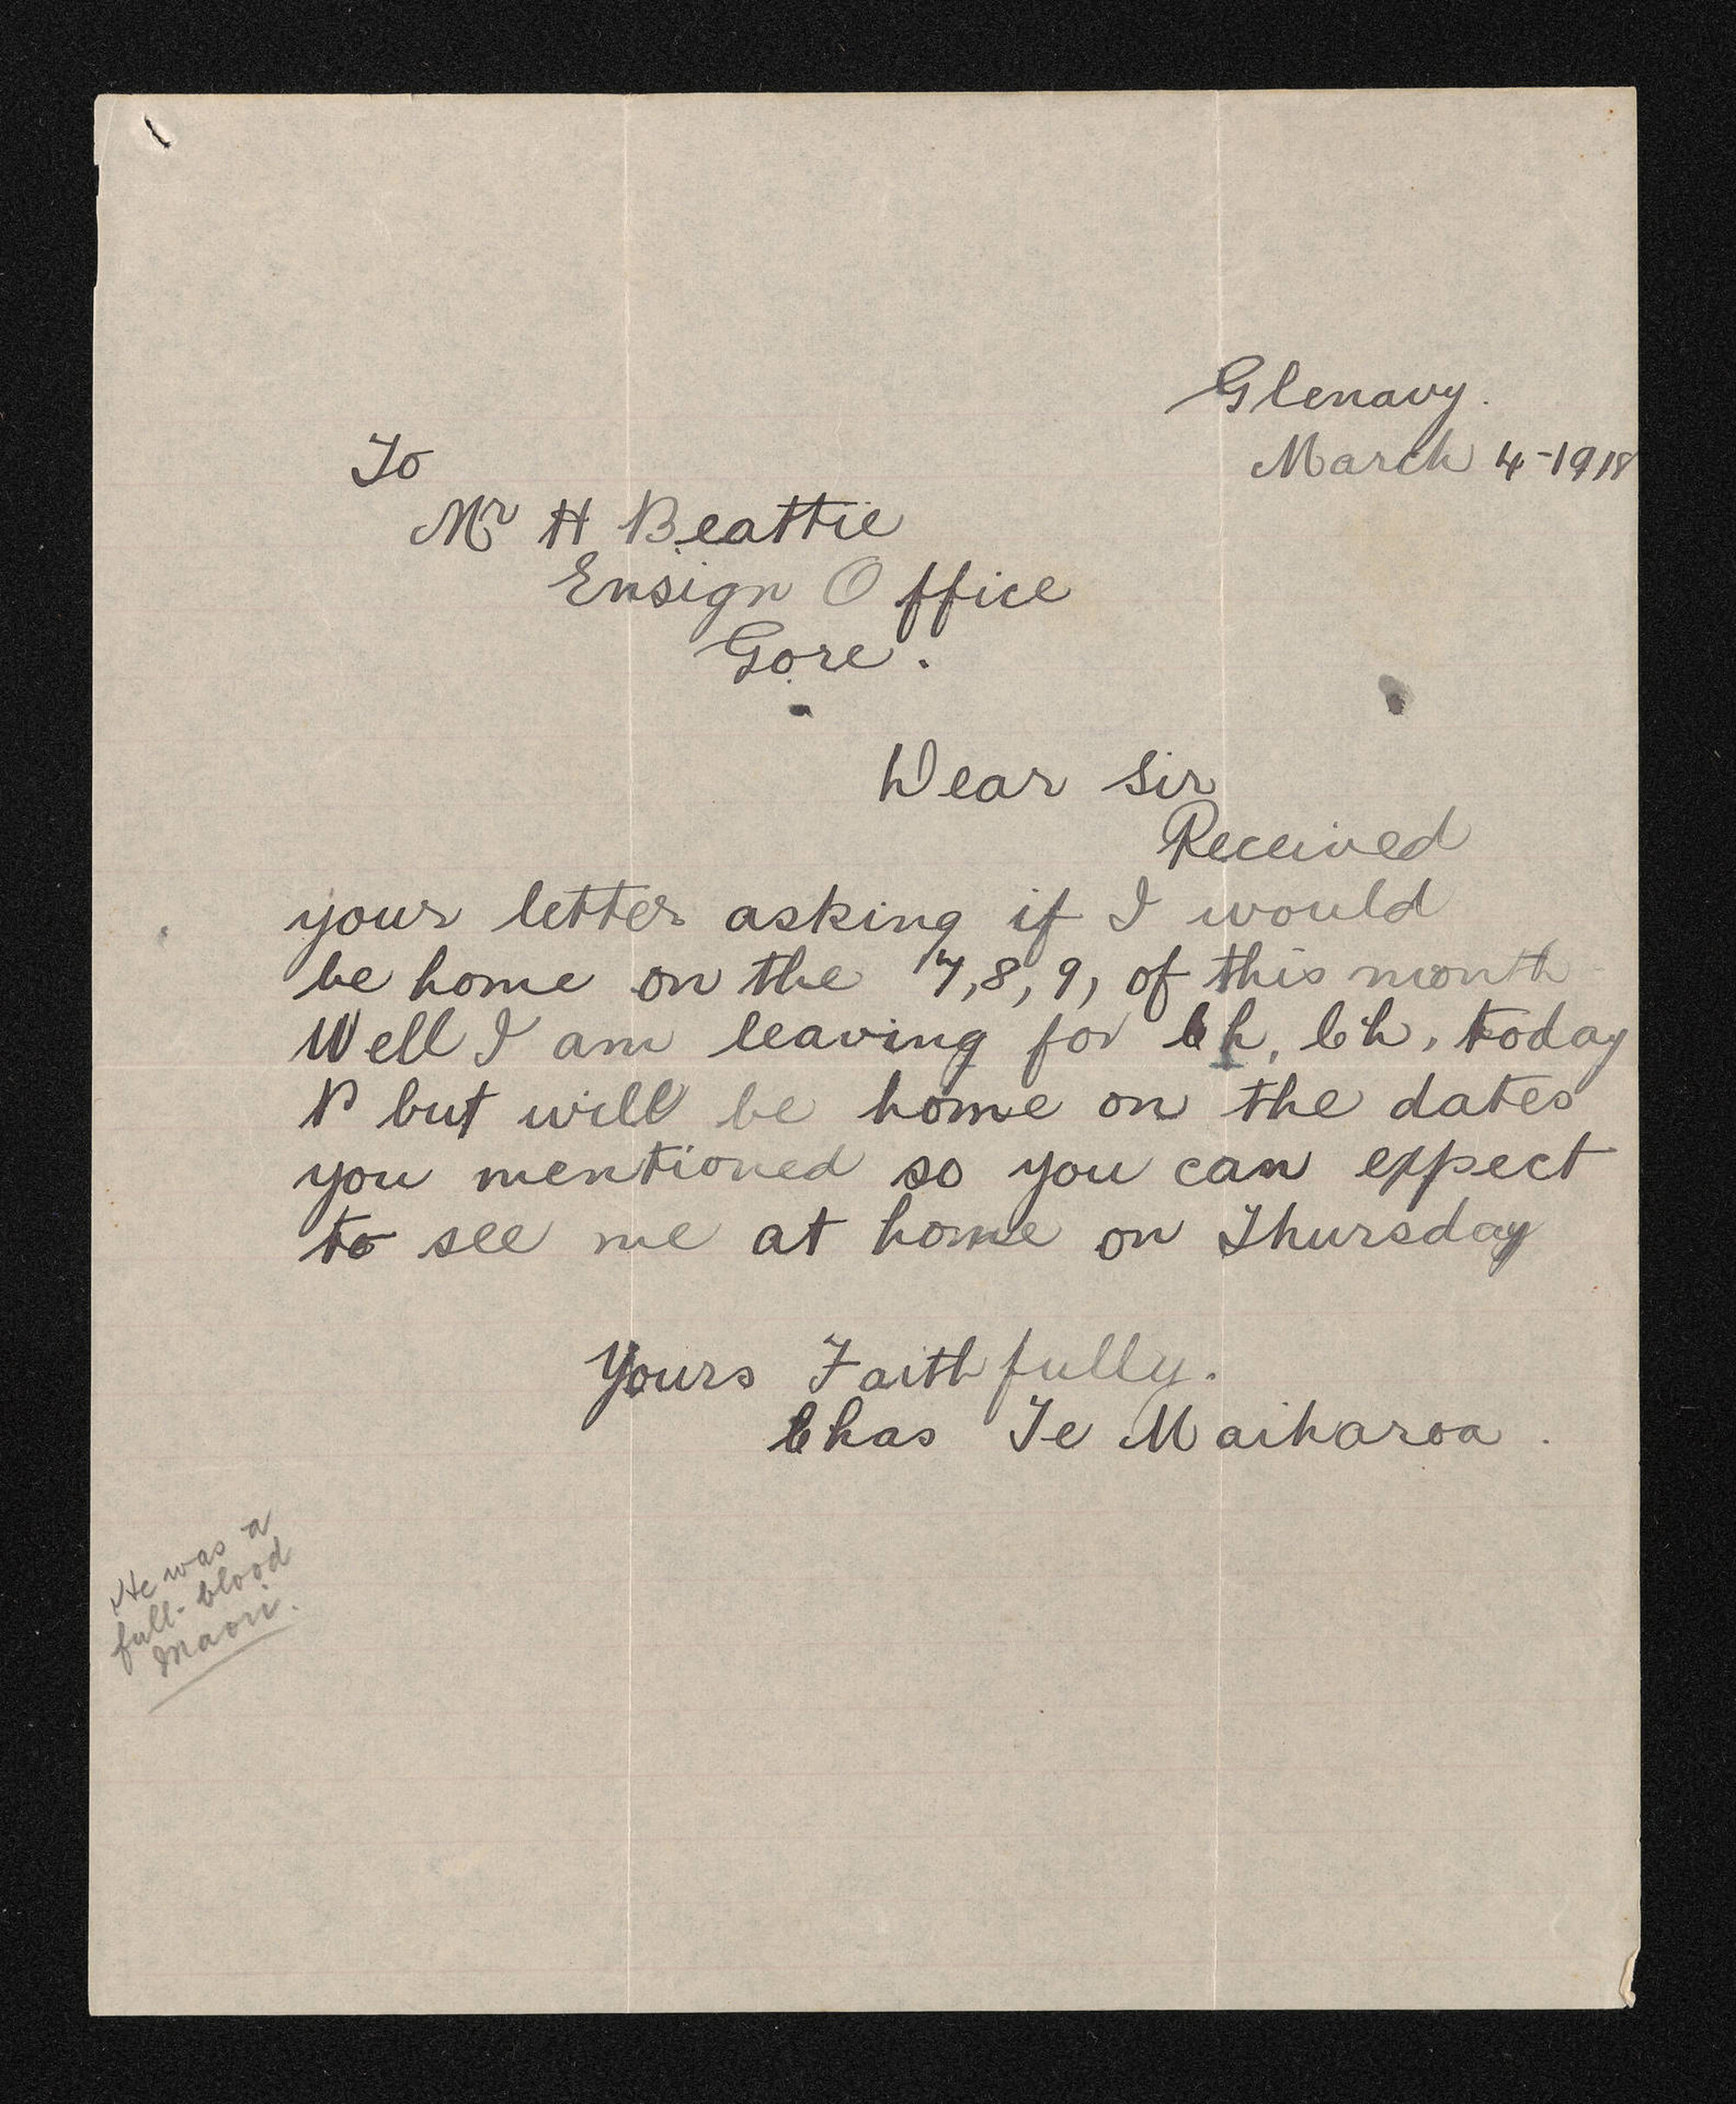 Glenavy.
March 4-1918
To
Mr H Beattie
Ensign Office
Gore.
Dear Sir
Received
your letter asking if I would
be home on the 7, 8, 9, of this month
Well I am leaving for Ch, Ch, today
but will be home on the dates
you mentioned so you can expect
to see me at home on Thursday
Yours Faithfully.
Chas Te Maiharoa.
He was a
full-blood
Maori.